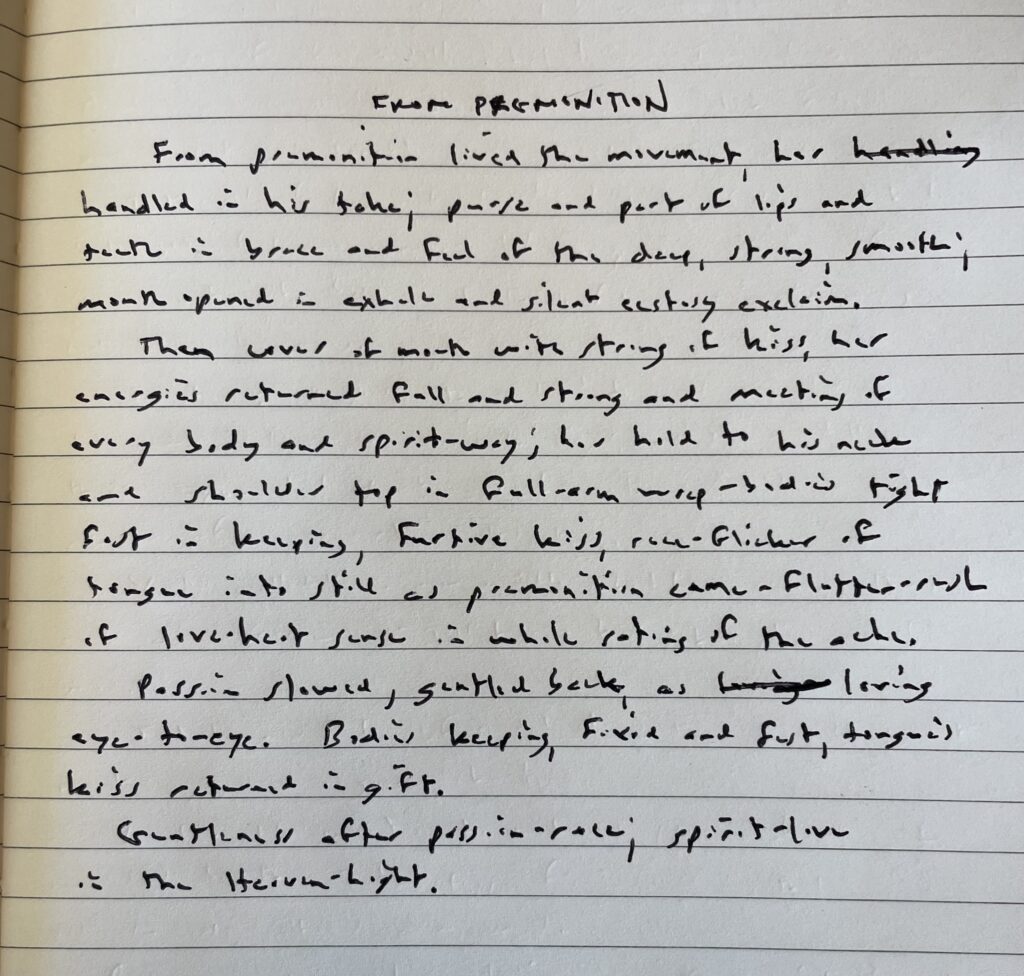 FROM PREMONITION
From premonition lived the movement, her handling
handled in his take; purse and part of lips and
teeth in brace and feel of the deep, strong, smooth;
mouth opened in exhale and silent ecstasy exclaim.
Then cover of mouth with string of kiss, her
energies returned full and strong and meeting of
every body and spirit-way; her hold to his neck
and shoulder top in full-arm wrap-bodies tight
fast in keeping, furtive kiss, race-flicker of
tongue into still as premonition came-flutter-rush
of love-heat sense in whole sating of the ache.
Passion slowed, gentled back, as loving
eye-to-eye. Bodies keeping, fixed and fast, tongue's
kiss returned in gift.
Gentleness after passion-race; spirit-love
in the Heaven-hight.